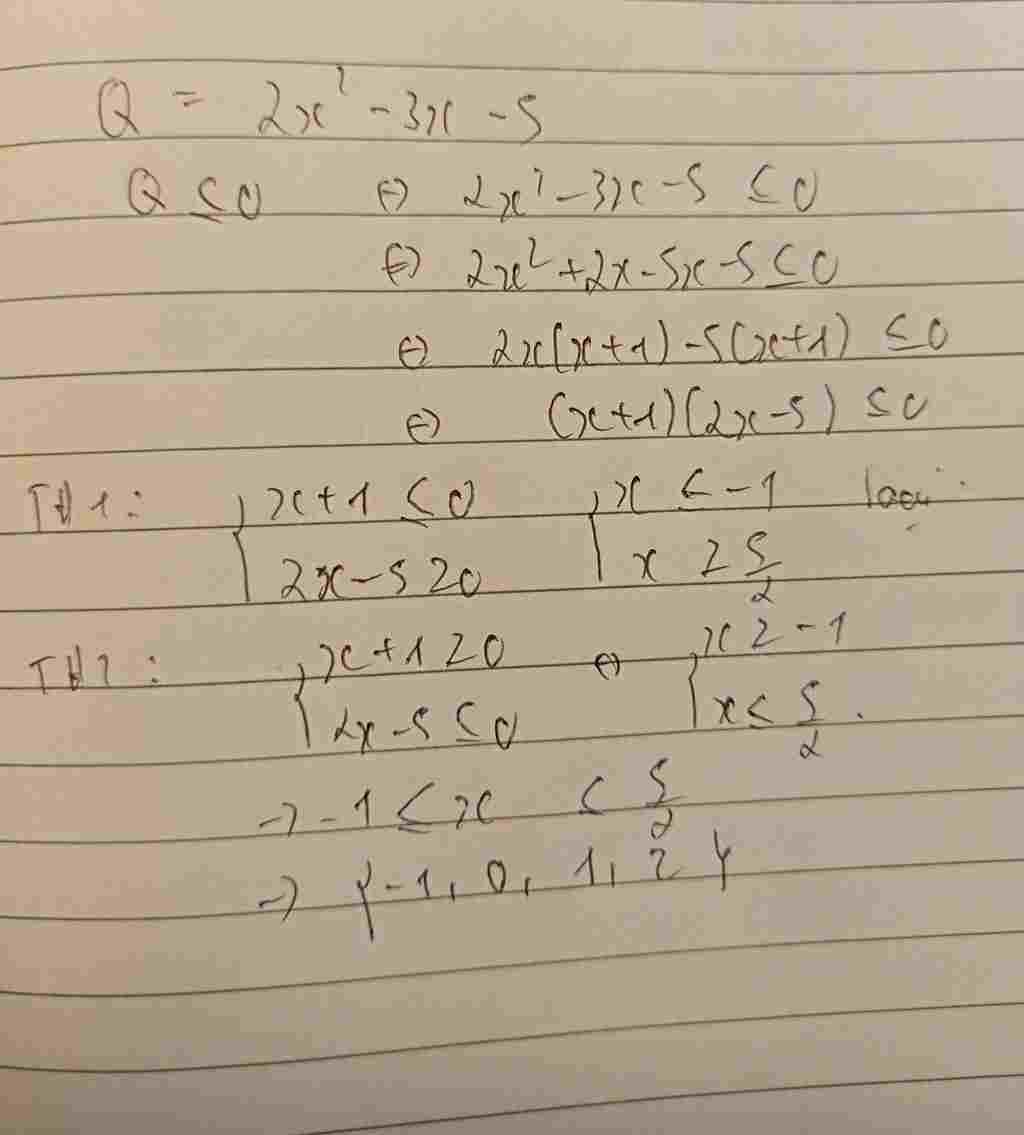 Q = 2x² - 3x - 5
Q ≤ 0 ⇔ 2x² - 3x - 5 ≤ 0
⇔ 2x² + 2x - 5x - 5 ≤ 0
⇔ 2x(x+1) - 5(x+1) ≤ 0
⇔ (x+1)(2x-5) ≤ 0
TH1: { x + 1 ≤ 0 { x ≤ -1 loại
2x - 5 ≥ 0 x ≥ 5/2
TH2: { x + 1 ≥ 0 ⇔ { x ≥ -1
2x - 5 ≤ 0 x ≤ 5/2.
→ -1 ≤ x ≤ 5/2
→ {-1, 0, 1, 2}